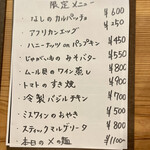 限定メニュー
なしのカルパッチョ ¥600
アフリカンエッグ ¥250
ハニーナッツ on パンプキン ¥450
じゃがいもの みそバター ¥550
ムール貝の ワイン蒸し ¥880
トマトの すき焼 ¥700
冷製 バジルチキン ¥700
ミスワインのおやき ¥500
スティックマルゲリータ ¥800
本日の〆の麺 ¥1100-